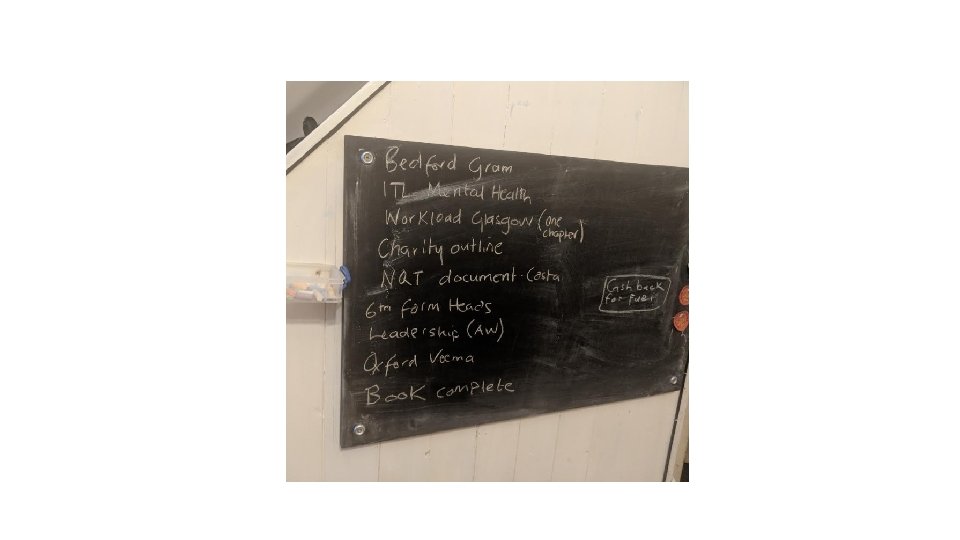 Bedford Gram
ITL Mental Health
Workload Glasgow (one
chapter)
Charity outline
NQT document. Costa
Cash back
for Fuel
6th form Heads
Leadership (AW)
Oxford
Book complete